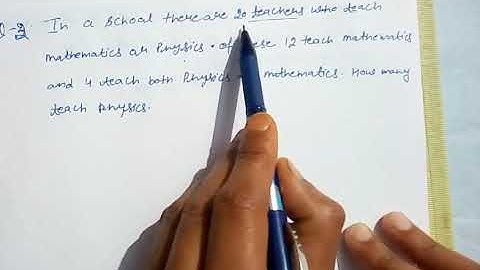 Q-2. In a school there are 20 teachers who teach
mathematics or Physics. of 12 teach mathematics
and 4 teach both Physics mathematics. How many
teach physics.